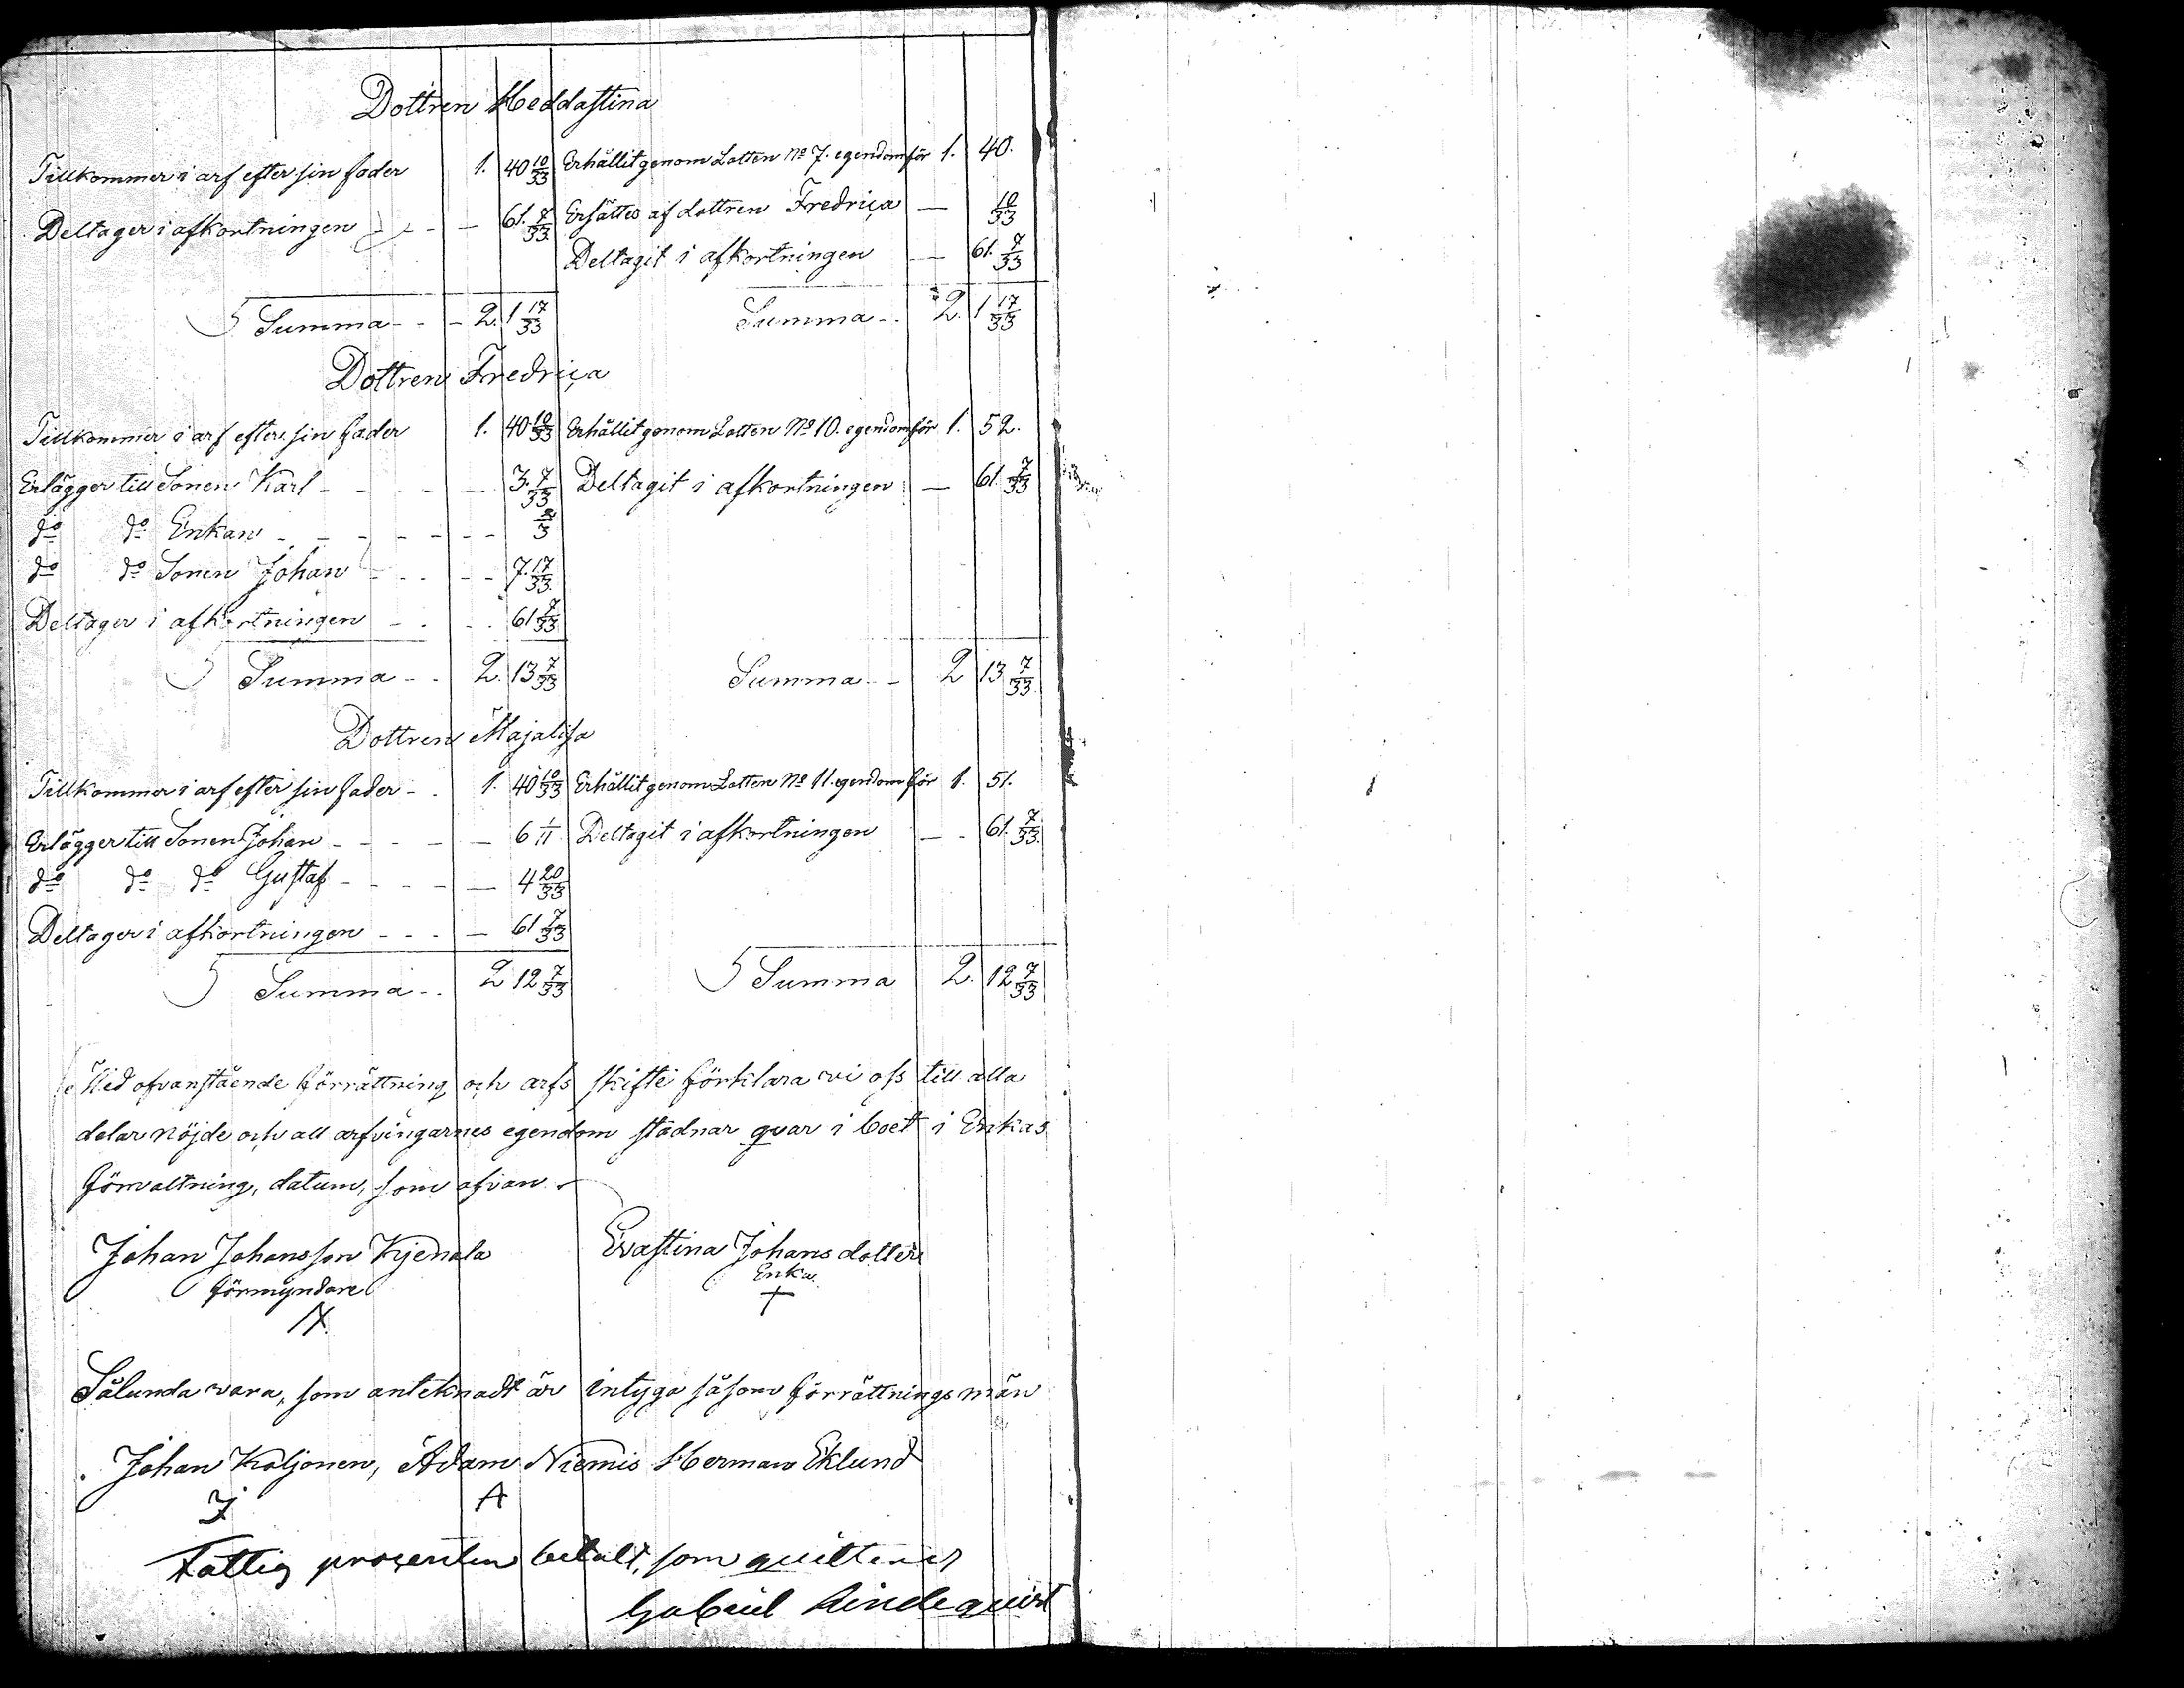 Dottren Heddastina
Tillkommer i arf efter sin fader 1. 40 10/33 Erhållit genom Lotten No 7. egendom för 1. 40.
Deltager i afkortningen - - — 61. 7/33. Ersättes af dottren Fredrica — 10/33
Deltagit i afkortningen — 61. 7/33
Summa - - - 2. 1 17/33 Summa - . 2. 1 17/33
Dottren Fredrica
Tillkommer i arf efter sin fader 1. 40 10/33 Erhållit genom Lotten No 10. egendom för 1. 52.
Erlägger till Sonen Karl - - - - — 3. 7/33 Deltagit i afkortningen — 61. 7/33
do do Enkan - - - - - - - 2/3
do do Sonen Johan - - . - - 7. 17/33.
Deltager i afkortningen - . - . 61 7/33
Summa - . 2. 13 7/33 Summa - - 2 13 7/33.
Dottren Majalisa
Tillkommer i arf efter sin fader - . 1. 40 10/33 Erhållit genom Lotten No 11. egendom för 1. 51.
Erlägger till Sonen Johan - - - - — 6 1/11. Deltagit i afkortningen — - 61. 7/33.
do do do Gustaf - - - - — 4 20/33
Deltager i afkortningen - - - — 61 7/33
Summa - . 2 12 7/33 Summa 2. 12 7/33
Wid ofvanstående förrättning och arfs skifte förklara vi oss till alla
delar nöjde och all arfvingarnes egendom stadnar qvar i boet i Enkas
förvaltning, datum, som ofvan.
Johan Johansson Kjenala Evastina Johansdotter
förmyndare Enka
X +
Sålunda vara, som anteknadt är intyga såsom förrättningsmän
Johan Koljonen, Adam Niemis Herman Eklund
J A
Fattig procenten betalt, som quitteras
Gabriel Lindequist